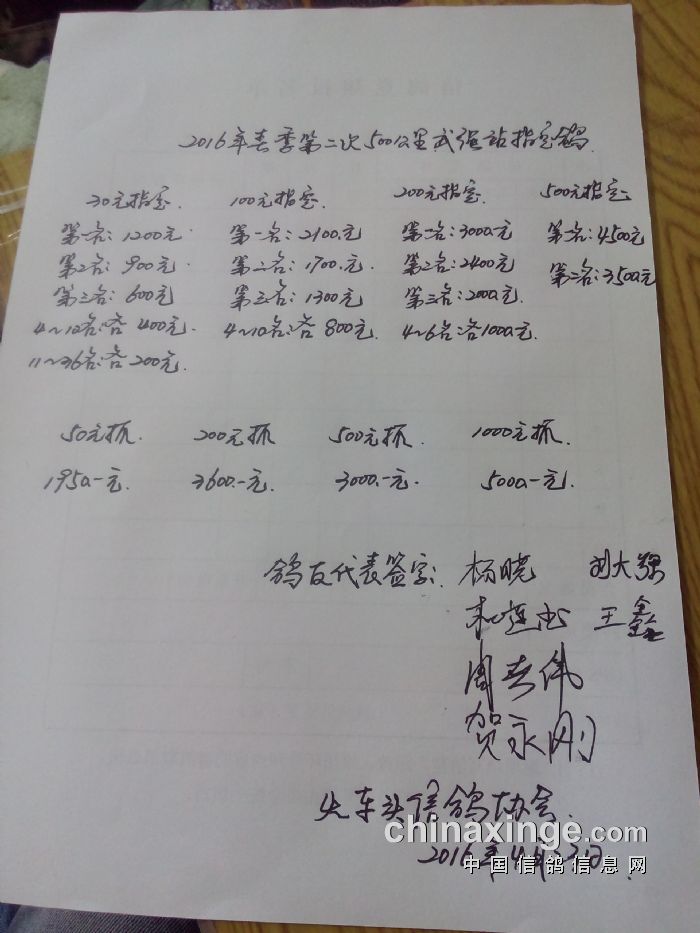 2016年春季第二次500公里武强站指定鸽
30元指定 100元指定 200元指定 500元指定
第一名:1200元 第一名:2100元 第一名:3000元 第一名:4500元
第二名:900元 第二名:1700元 第二名:2400元 第二名:3500元
第三名:600元 第三名:1300元 第三名:2000元
4~10名:各400元 4~10名:各800元 4~6名:各1000元
11~36名:各200元
50元抓 200元抓 500元抓 1000元抓
1950.一元 3600.一元 3000.一元 5000.一元
鸽友代表签字: 杨晓 刘大强
王鑫
周春伟
贺永刚
车头信鸽协会
chinaxinge.com
2016年4月 日
中国信鸽信息网